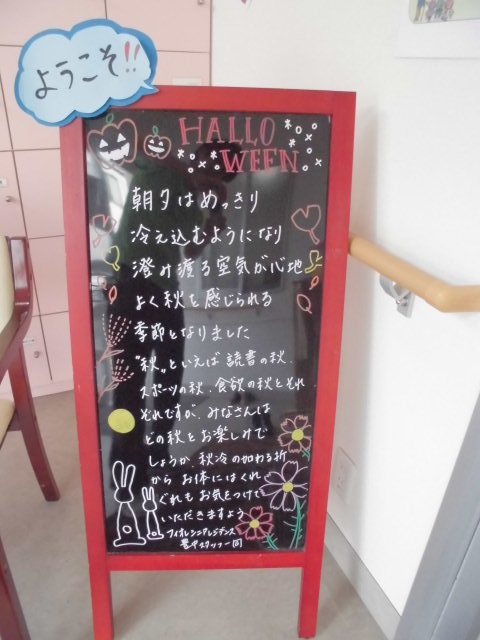 ようこそ!!
HALLO
WEEN
朝夕はめっきり
冷え込むようになり
澄み渡る空気が心地
よく秋を感じられる
季節となりました
"秋"といえば読書の秋.
スポーツの秋.食欲の秋とそれ
それですが、みなさんは
どの秋をお楽しみで
しょうか.秋冷の加わる折
から お体にはくれ
ぐれも お気をつけて
いただきますよう
フィオレ・シニアレジデンス
スタッフ一同